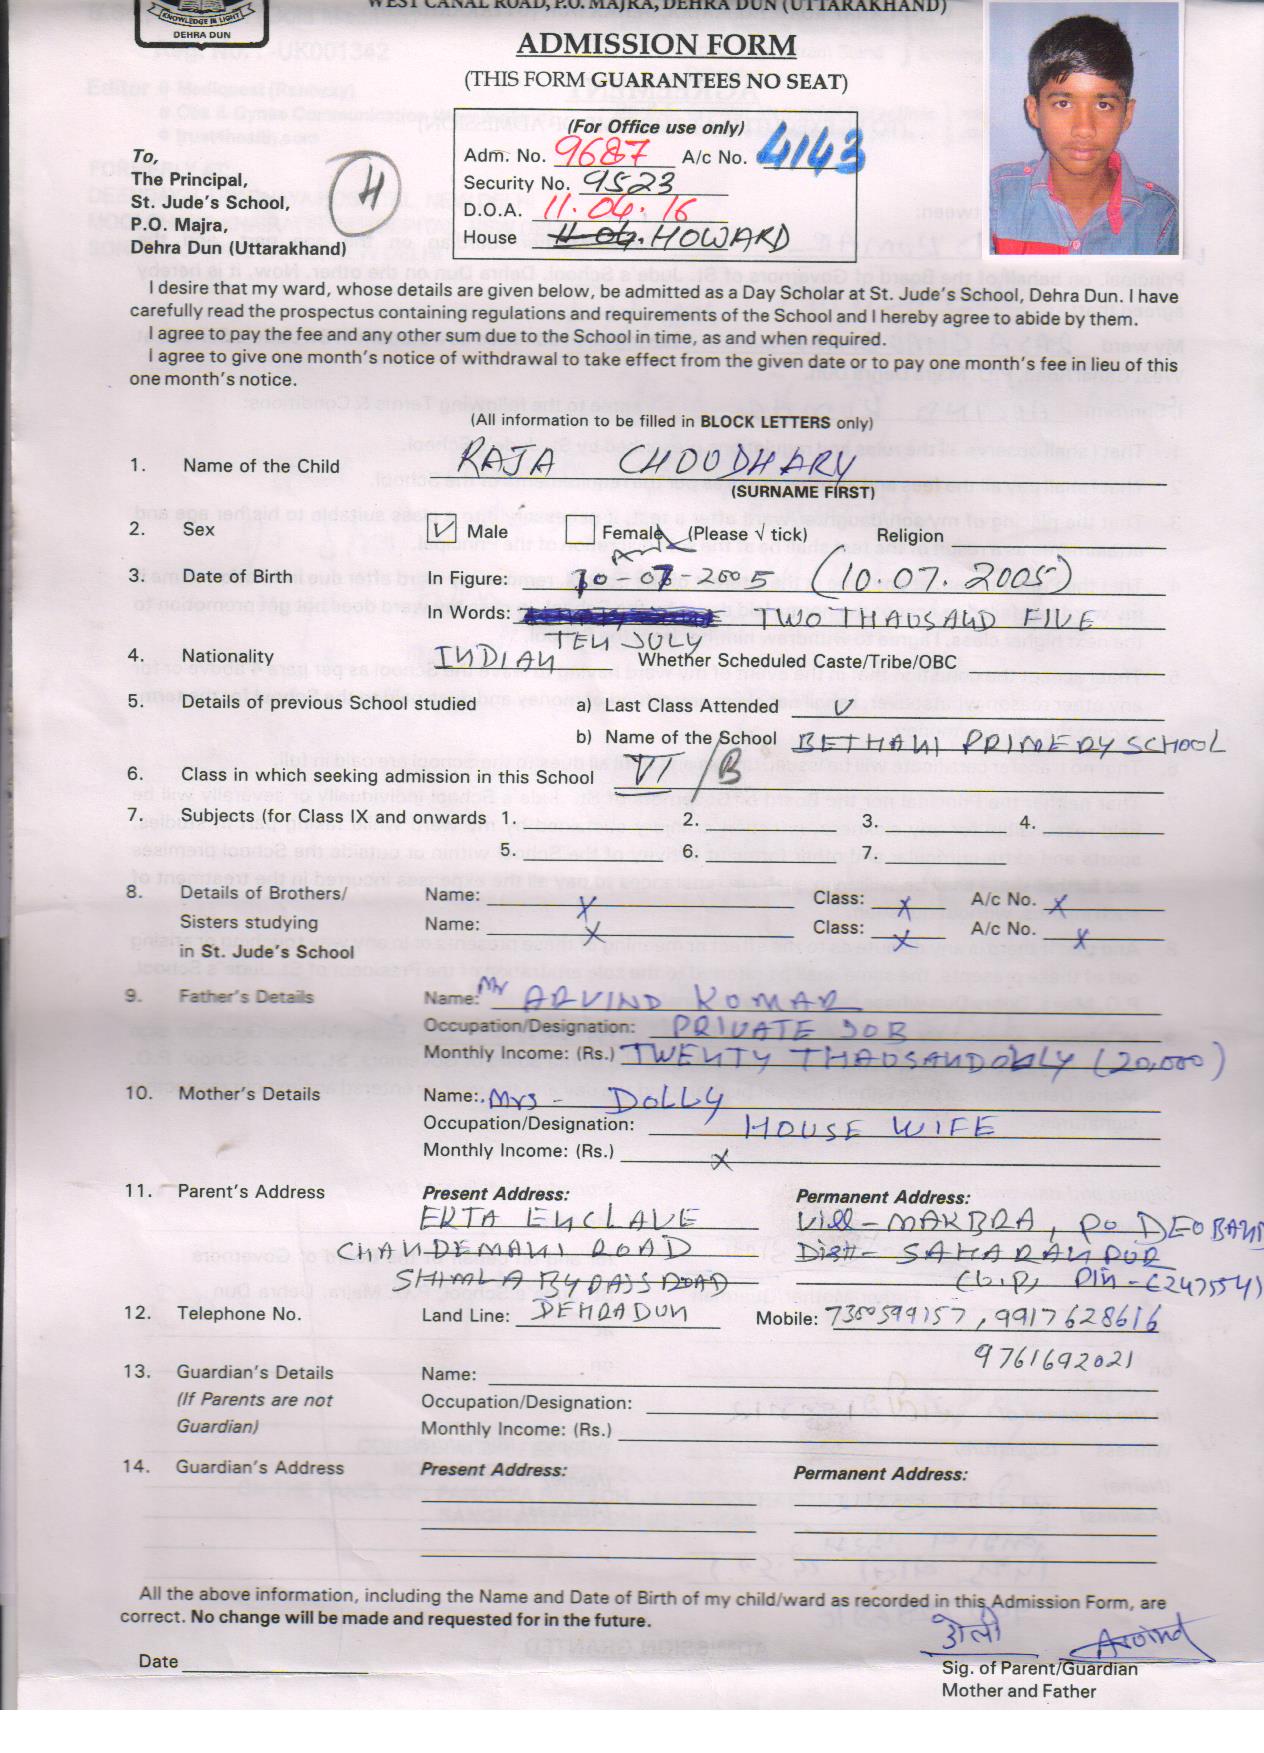 KNOWLEDGE IS LIGHT
DEHRA DUN
WEST CANAL ROAD, P.O. MAJRA, DEHRA DUN (UTTARAKHAND)
ADMISSION FORM
(THIS FORM GUARANTEES NO SEAT)
(For Office use only)
Adm. No. 9687 A/c No. 4143
Security No. 9523
D.O.A. 11.04.16
House HOWARD
H
To,
The Principal,
St. Jude's School,
P.O. Majra,
Dehra Dun (Uttarakhand)
I desire that my ward, whose details are given below, be admitted as a Day Scholar at St. Jude's School, Dehra Dun. I have
carefully read the prospectus containing regulations and requirements of the School and I hereby agree to abide by them.
I agree to pay the fee and any other sum due to the School in time, as and when required.
I agree to give one month's notice of withdrawal to take effect from the given date or to pay one month's fee in lieu of this
one month's notice.
(All information to be filled in BLOCK LETTERS only)
1. Name of the Child RAJA CHOUDHARY
(SURNAME FIRST)
2. Sex Male Female (Please √ tick) Religion
3. Date of Birth In Figure: 10-07-2005 (10.07.2005)
In Words: TWO THAUSAND FIVE
TEN JULY
4. Nationality INDIAN Whether Scheduled Caste/Tribe/OBC
5. Details of previous School studied a) Last Class Attended V
b) Name of the School BETHANI PRIMEDY SCHOOL
6. Class in which seeking admission in this School VI /B
7. Subjects (for Class IX and onwards 1. 2. 3. 4.
5. 6. 7.
8. Details of Brothers/ Name: X Class: X A/c No. X
Sisters studying Name: X Class: X A/c No. X
in St. Jude's School
9. Father's Details Name: Mr ARVIND KUMAR
Occupation/Designation: PRIVATE JOB
Monthly Income: (Rs.) TWENTY THAUSAND ONLY (20,000)
10. Mother's Details Name: Mrs - DOLLY
Occupation/Designation: HOUSE WIFE
Monthly Income: (Rs.) X
11. Parent's Address Present Address: Permanent Address:
EKTA ENCLAVE Vill - MAKBRA, PO DEOBAND
CHANDEMANI ROAD Distt - SAHARANPUR
SHIMLA BYPASS ROAD (U.P) Pin - (247554)
12. Telephone No. Land Line: DEHRADUN Mobile: 7300599157, 9917628616
9761692021
13. Guardian's Details Name:
(If Parents are not Occupation/Designation:
Guardian) Monthly Income: (Rs.)
14. Guardian's Address Present Address: Permanent Address:
All the above information, including the Name and Date of Birth of my child/ward as recorded in this Admission Form, are
correct. No change will be made and requested for in the future.
डोली Arvind
Date
Sig. of Parent/Guardian
Mother and Father